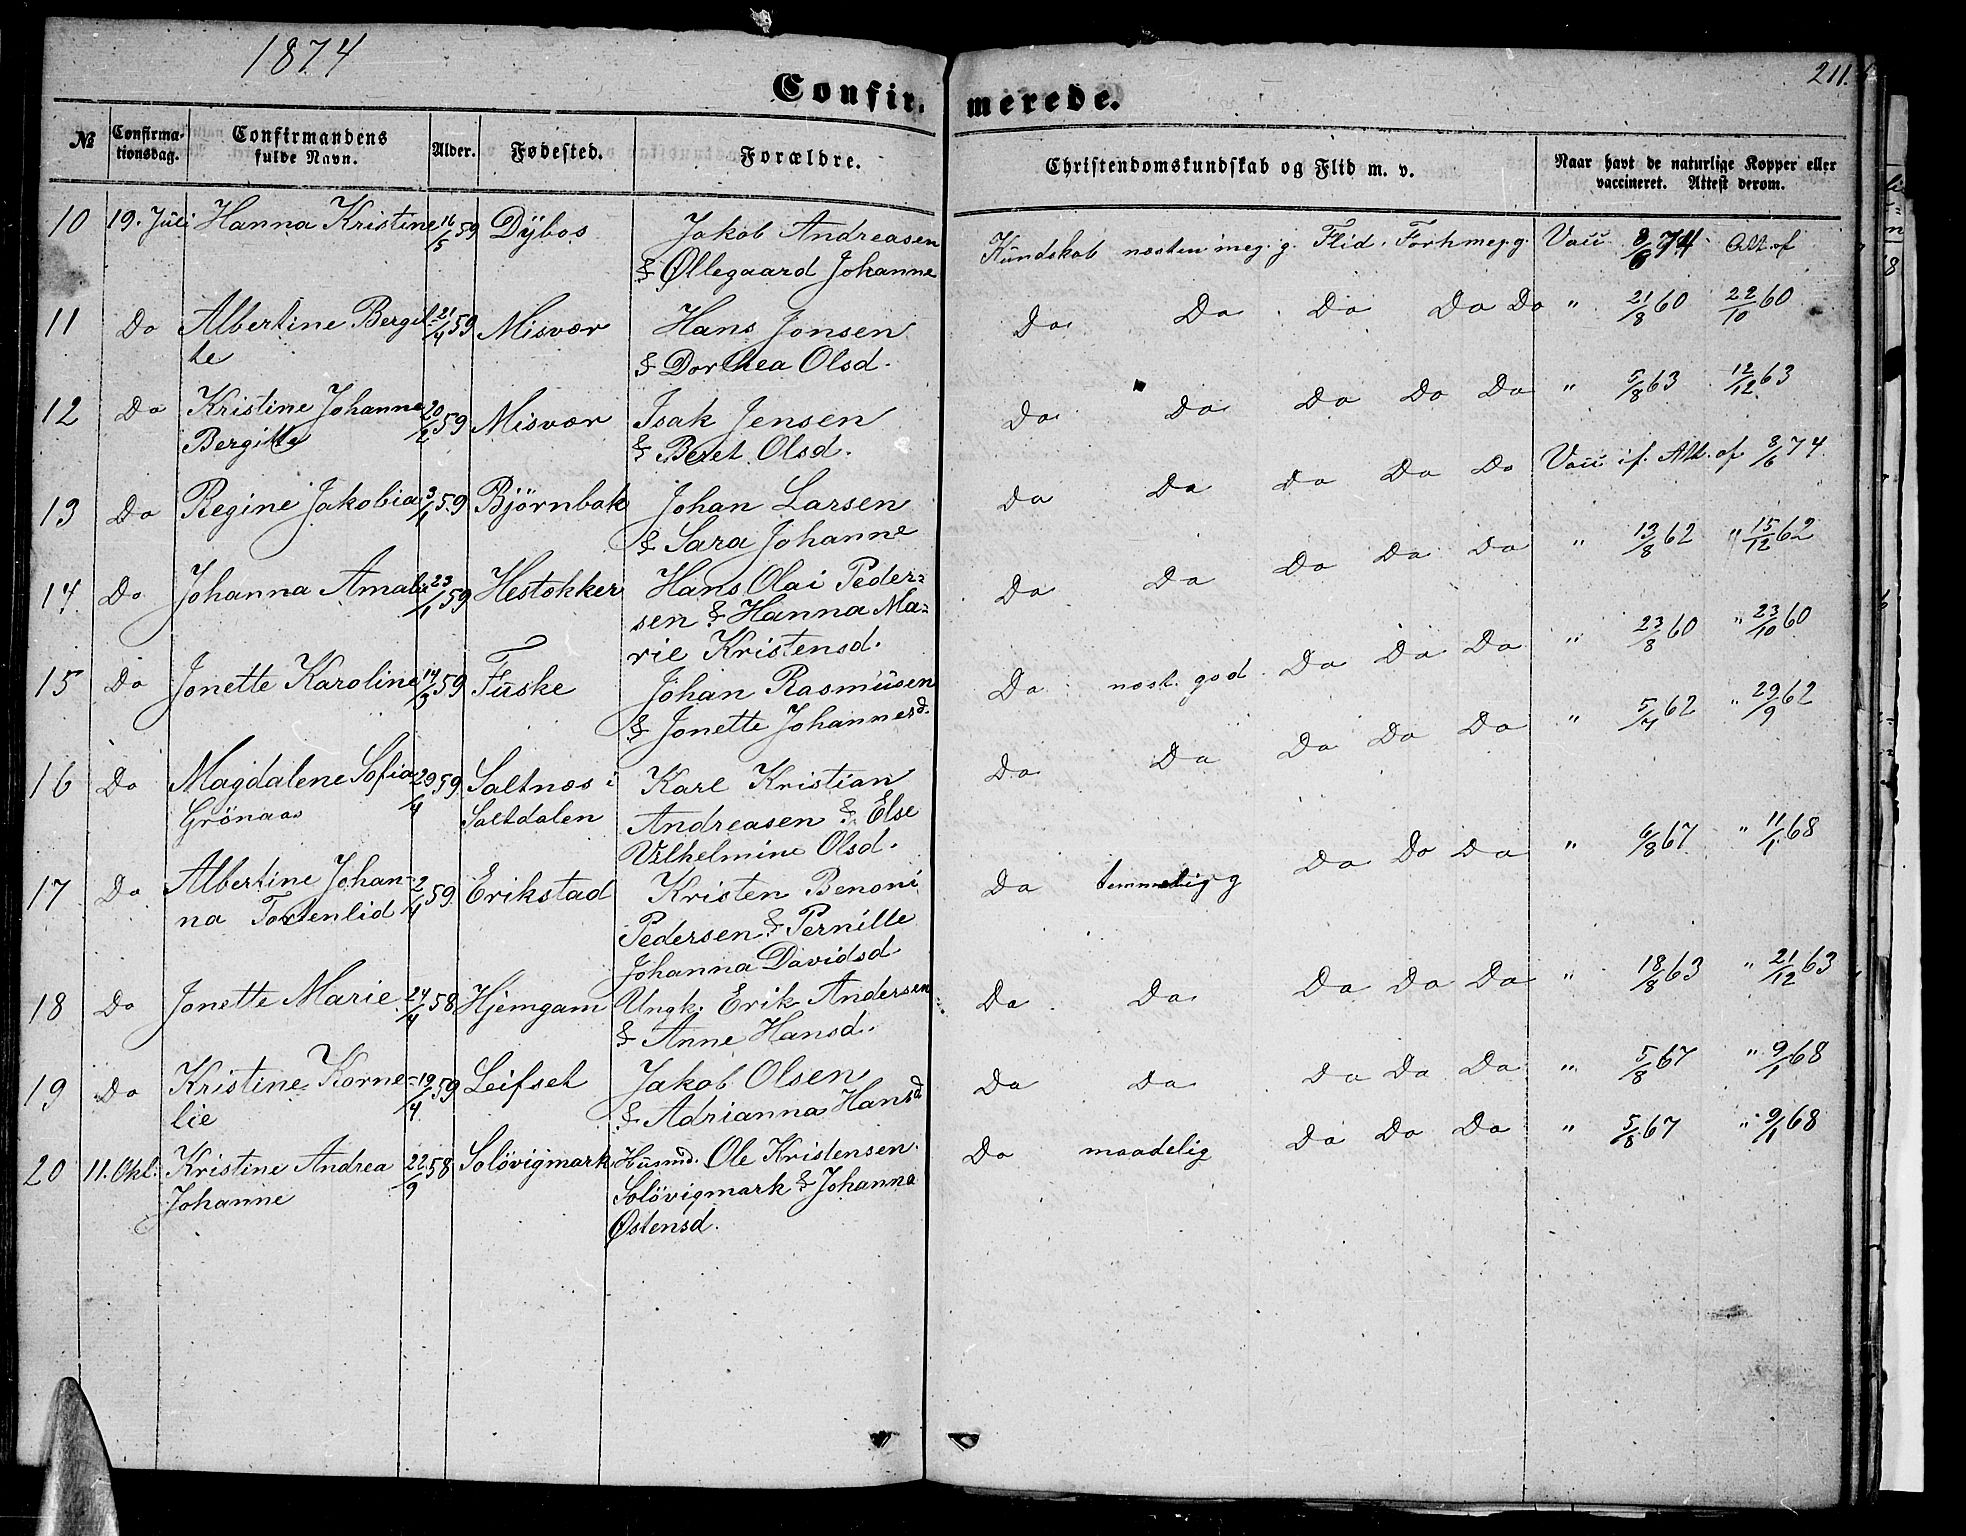 1874
211.
Confir- merede.
№ Confirma-tionsdag. Confirmandens fulde Navn. Alder. Fødested. Forældre. Christendomskundskab og Flid m. v. Naar havt de naturlige Kopper eller vaccineret. Attest derom.
10 19. Juli Hanna Kristine 16/5 59 Dybos Jakob Andreasen Kundskab næsten meg. g. Flid. Forh meg. g. Vacc 8/6 74 Att. af
& Øllegaard Johanne
11 Do Albertine Bergit- 21/4 59 Misvær Hans Jonsen Do Do Do Do Do " 21/8 60 22/10 60
te & Dorthea Olsd.
12 Do Kristine Johanne 20/2 59 Misvær Isak Jensen Do Do Do Do Do " 5/8 63 12/12 63
Bergitte & Beret Olsd.
13 Do Regine Jakobia 3/1 59 Bjørnbak Johan Larsen Do Do Do Do Do Vacc if. Att. af 8/6 74
& Sara Johanne
14 Do Johanna Amalie 23/1 59 Hestokker Hans Olai Peder- Do Do Do Do Do " 13/8 62 " 15/12 62
sen & Hanna Ma-
rie Kristensd.
15 Do Jonette Karoline 14/5 59 Fuske Johan Rasmusen Do næst. god Do Do Do " 23/8 60 " 23/10 60
& Jonette Johannesd.
16 Do Magdalene Sofia 29/4 59 Saltnæs i Karl Kristian Do Do Do Do Do " 5/7 62 " 29/9 62
Grönaas Saltdalen Andreasen & Else
Vilhelmine Olsd.
17 Do Albertine Johan- 2/4 59 Erikstad Kristen Benoni Do temmelig g Do Do Do " 6/8 67 " 11/1 68
na Tortenlid Pedersen & Pernille
Johanna Davidsd
18 Do Jonette Marie 24/4 58 Hjemgam Ungk. Erik Andersen Do Do Do Do Do " 18/8 63 " 21/12 63
& Anne Hansd.
19 Do Kristine Korne- 19/4 59 Leifset Jakob Olsen Do Do Do Do Do " 5/8 67 " 9/1 68
lie & Adrianna Hansd
20 11. Okt. Kristine Andrea 22/9 58 Solövigmark Husmd. Ole Kristensen Do maadelig Do Do Do " 5/8 67 " 9/1 68
Johanne Solövigmark & Johanna
Østensd.